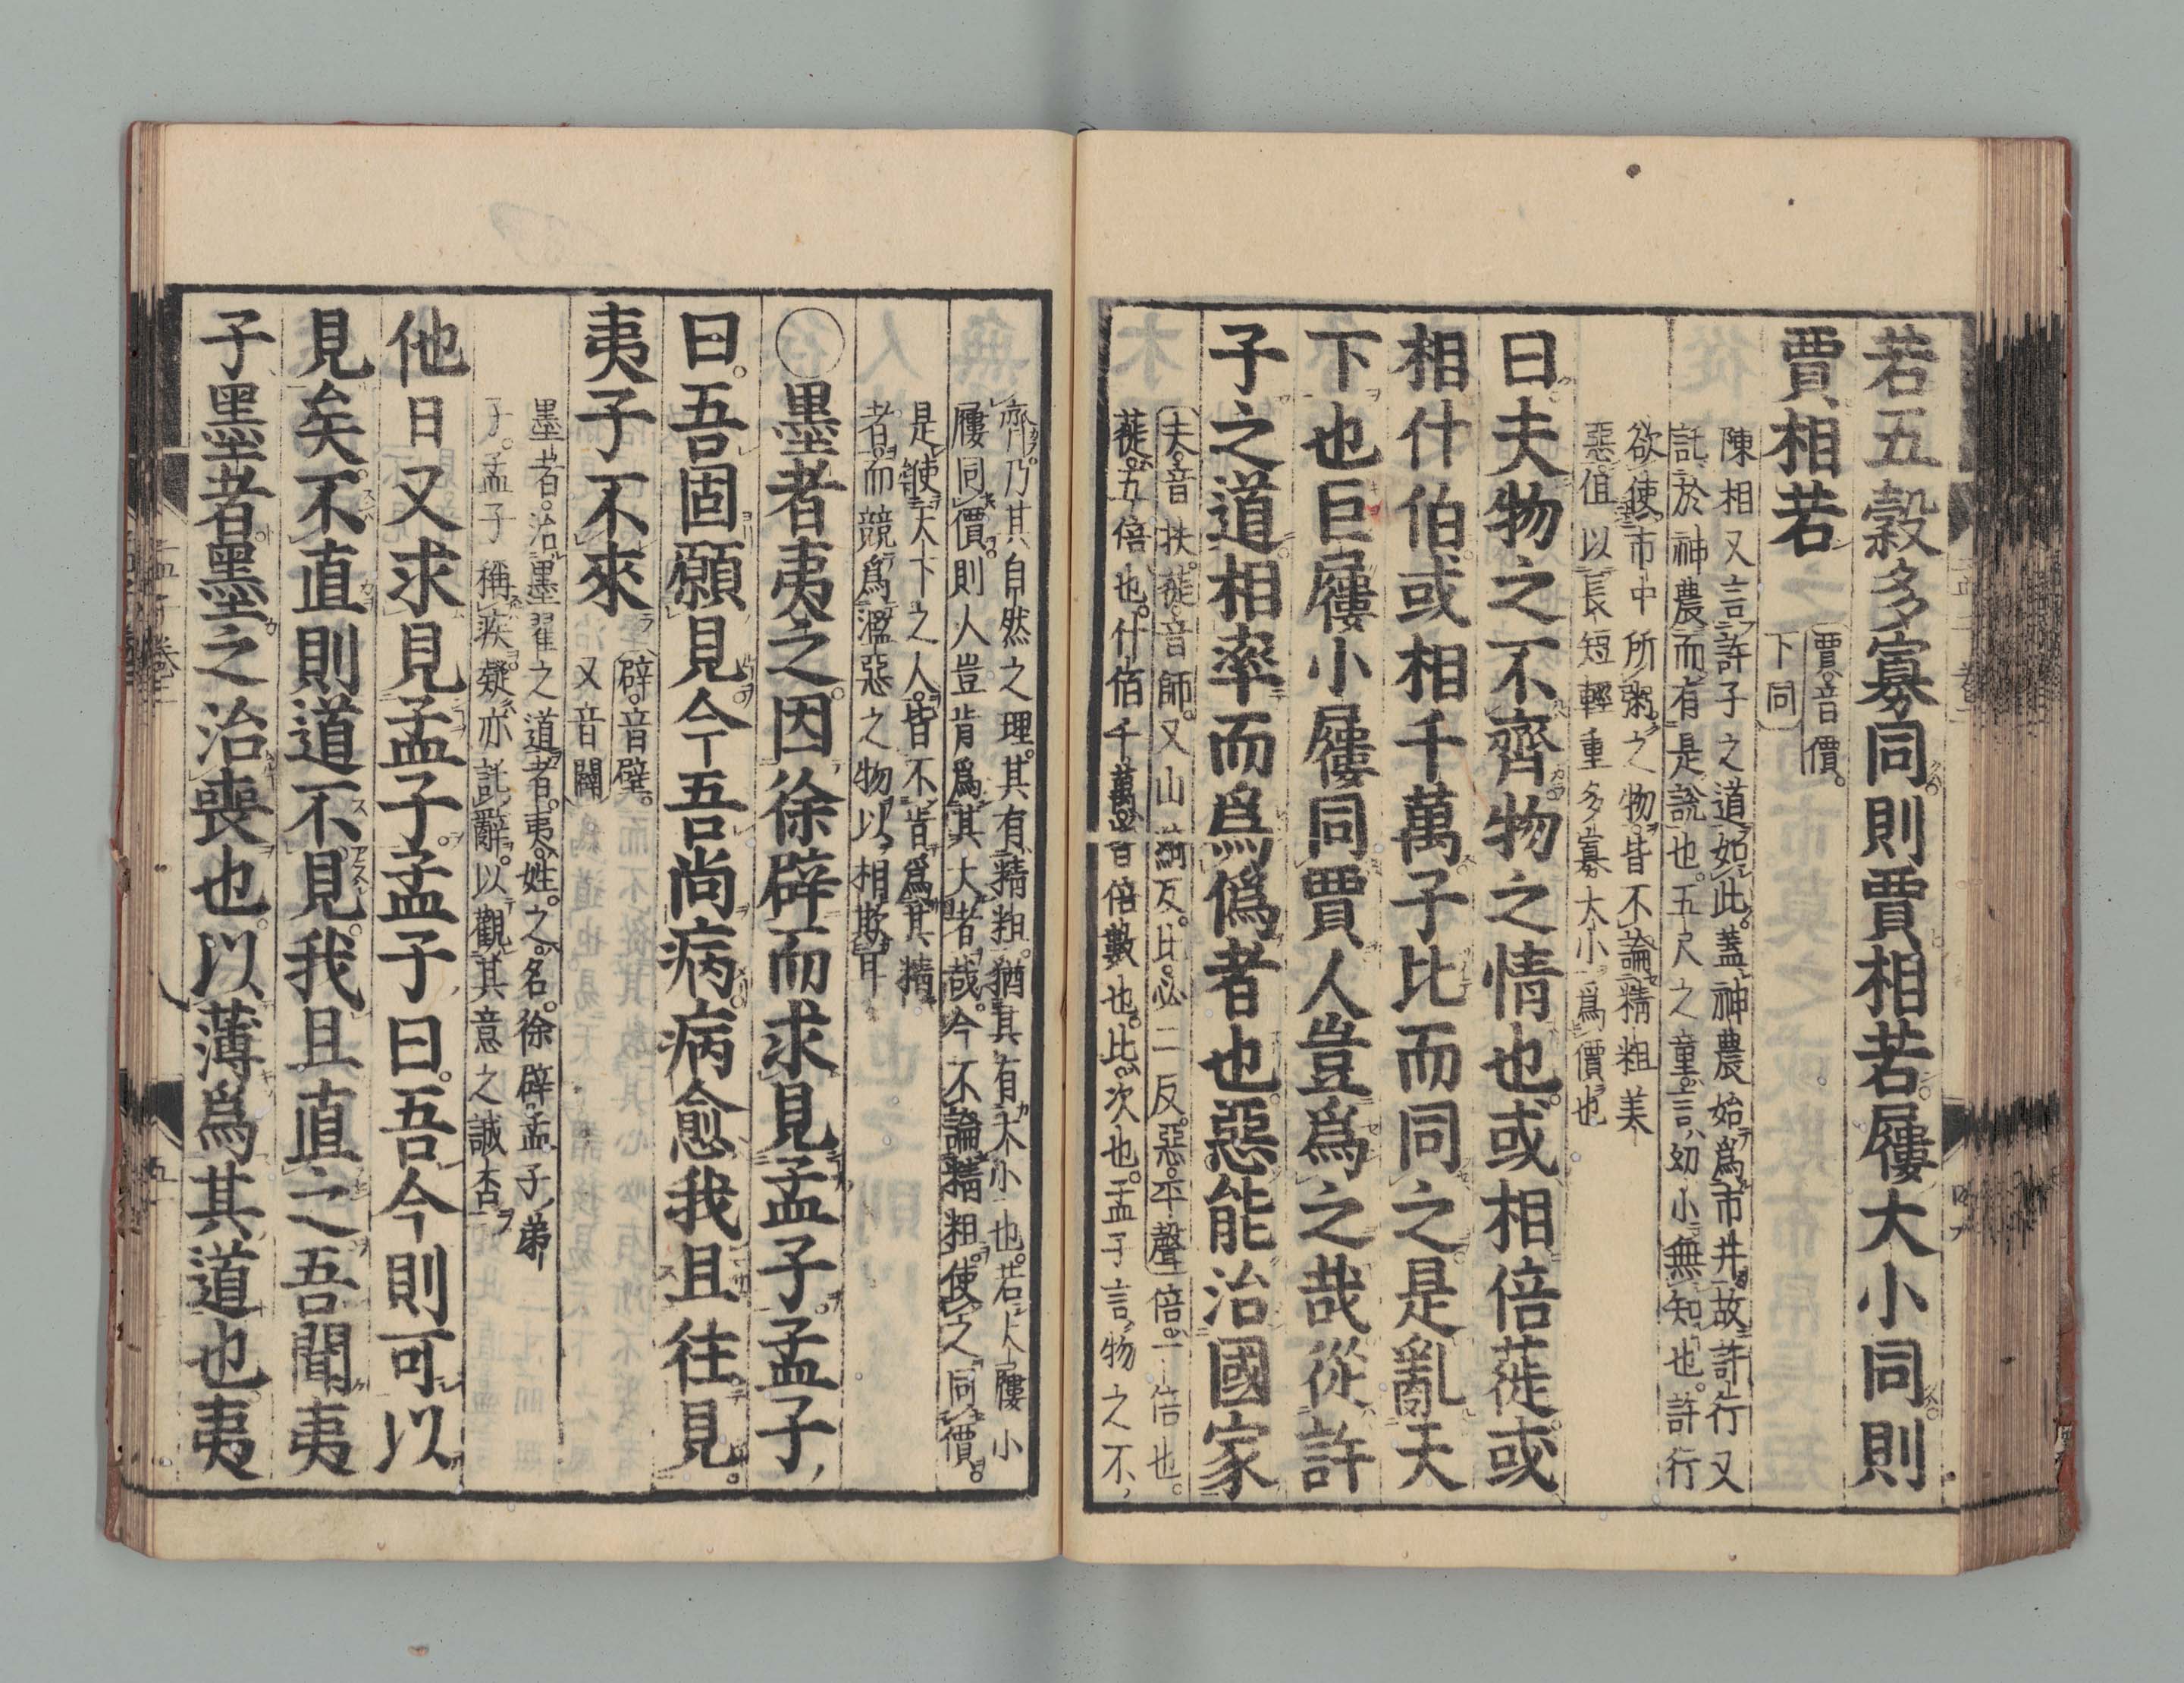 若五穀多寡同則賈相若屨大小同則
賈相若
賈音價
下同
陳相又言許子之道如此蓋神農始爲市井故許行又
託於神農而有是說也五尺之童言幼小無知也許行
欲使市中所粥之物皆不論精粗美
惡但以長短輕重多寡大小爲價也
曰夫物之不齊物之情也或相倍蓰或
相什伯或相千萬子比而同之是亂天
下也巨屨小屨同賈人豈爲之哉從許
子之道相率而爲僞者也惡能治國家
夫音扶蓰音師又山綺反比必二反惡平聲倍一倍也
蓰五倍也什伯千萬皆倍數也比次也孟子言物之不
齊乃其自然之理其有精粗猶其有大小也若大屨小
屨同價則人豈肯爲其大者哉今不論精粗使之同價
是使天下之人皆不肯爲其精
者而競爲濫惡之物以相欺耳
○墨者夷之因徐辟而求見孟子孟子
曰吾固願見今吾尚病病愈我且往見
夷子不來
辟音璧
又音闢
墨者治墨翟之道者夷姓之名徐辟孟子弟
子孟子稱疾疑亦託辭以觀其意之誠否
他日又求見孟子孟子曰吾今則可以
見矣不直則道不見我且直之吾聞夷
子墨者墨之治喪也以薄爲其道也夷